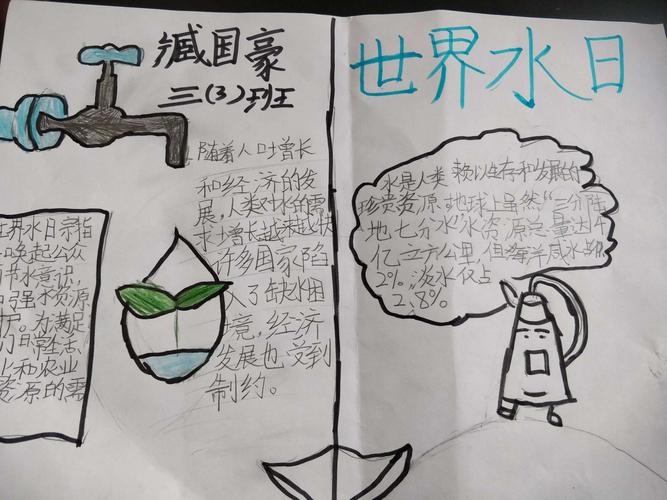 臧国豪
三(3)班
世界水日
随着人口增长
和经济的发
展,人类对水的需
求增长越来越快
许多国家陷
入了缺水困
境,经济
发展也受到
制约。
水是人类 赖以生存和发展的
珍贵资源.地球上虽然“三分陆
地七分水”水资源总量达
亿立方公里,但海洋咸水占
2%,淡水仅占
2.8%
世界水日宗旨
唤起公众
节水意识,
强水资源
护。为满足
们日常生活、
业和农业
资源的需